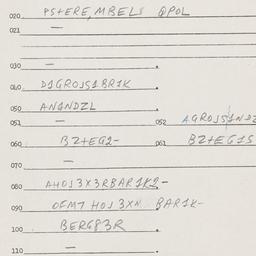 020 PS+ERE, MBELS QPOL
021 —
030 —
040 D1GROJS1BR1K
050 ANANDZL
051 — 052 AGROJS1NDZ
060 BZ+EG1- 061 BZ+EG1S
070 —
080 AHOJ3X3RBAR1K2-
090 OFM7 HOJ3XN BAR1K-
100 BERG83R
110 —